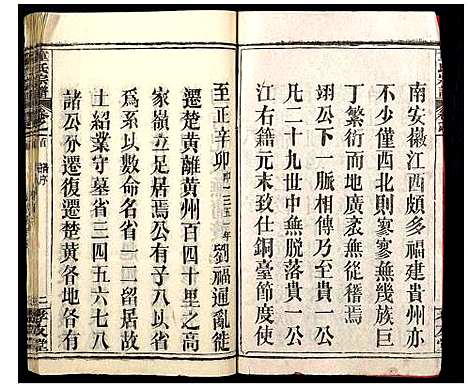 南安徽江西頗多福建貴州亦
不少僅西北則寥寥無幾族巨
丁繁衍而地廣袤無從稽焉
翊公下一脈相傳乃至貴一公
凡二十九世中無脫落貴一公
江右籍元末致仕銅臺節度使
至正辛卯即一三五一年劉福通亂徙
遷楚黃離黃州百四十里之高
家嶺立足居焉公有子八以省
為系以數命名省一二出嗣本
土紹業守墓省三四五六七八
諸公亦遷復遷楚黃各地各有
氏宗譜
卷之首
譜序
二
孝友堂